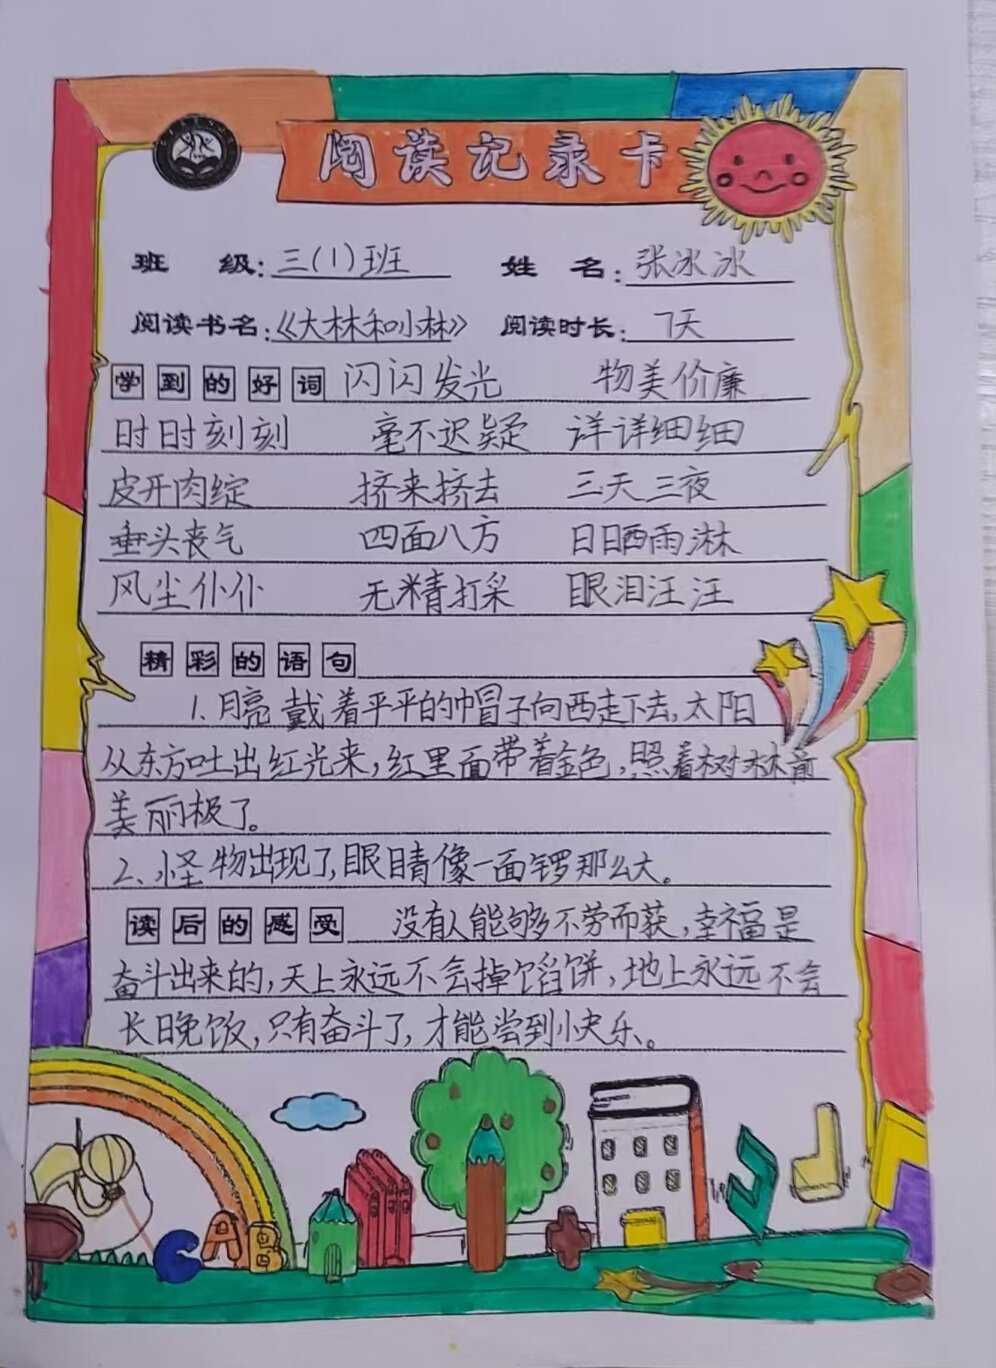 阅读记录卡
班 级：三(1)班 姓 名：张冰冰
阅读书名：《大林和小林》 阅读时长：7天
学到的好词 闪闪发光 物美价廉
时时刻刻 毫不迟疑 详详细细
皮开肉绽 挤来挤去 三天三夜
垂头丧气 四面八方 日晒雨淋
风尘仆仆 无精打采 眼泪汪汪
精彩的语句
1.月亮戴着平平的帽子向西走下去，太阳
从东方吐出红光来，红里面带着金色，照着树林前
美丽极了。
2、怪物出现了，眼睛像一面锣那么大。
读后的感受 没有人能够不劳而获，幸福是
奋斗出来的，天上永远不会掉馅饼，地上永远不会
长晚饭，只有奋斗了，才能尝到小快乐。
C A B